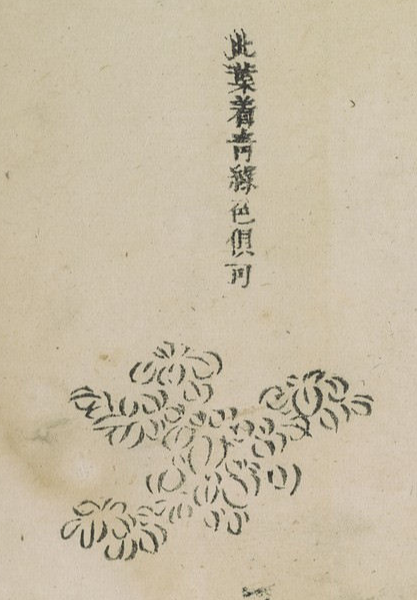 此葉着青綠色俱可